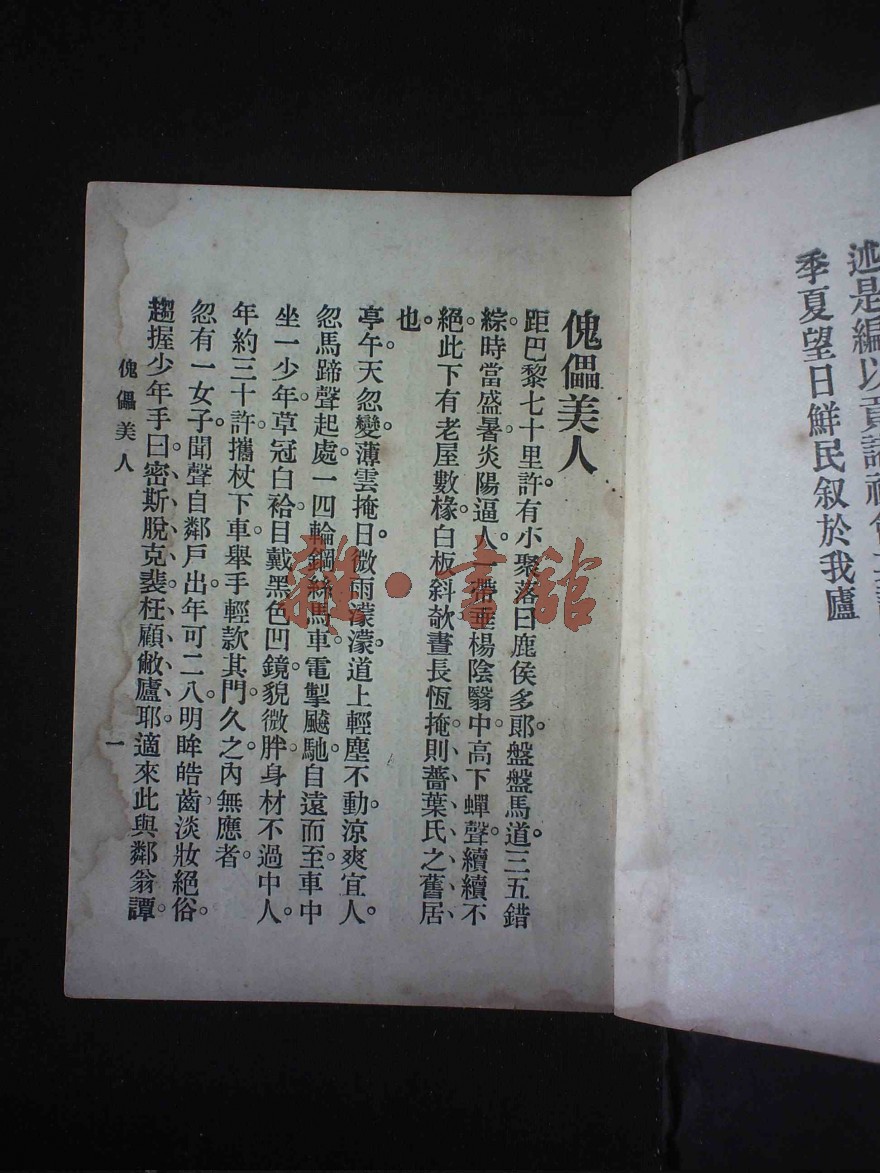 述是編以貢諸社會
季夏望日鮮民叙於我廬
傀儡美人
距巴黎七十里許。有小聚落曰鹿侯多郎。盤盤馬道。三五錯
綜。時當盛暑。炎陽逼人。一帶垂楊陰翳中。高下蟬聲。續續不
絕。此下有老屋數椽。白板斜欹。晝長恆掩。則薔葉氏之舊居
也。
亭午天忽變。薄雲掩日。微雨濛濛。道上輕塵不動。涼爽宜人。
忽馬蹄聲起處。一四輪鋼絲馬車。電掣飈馳。自遠而至。車中
坐一少年。草冠白袷。目戴黑色凹鏡。貌微胖。身材不過中人。
年約三十許。攜杖下車。舉手輕款其門。久之。內無應者
忽有一女子。聞聲自鄰戶出。年可二八。明眸皓齒。淡妝絕俗。
趨握少年手曰。密斯脫克裴。枉顧敝廬耶。適來此與鄰翁譚。
傀儡美人
一
雜·書館